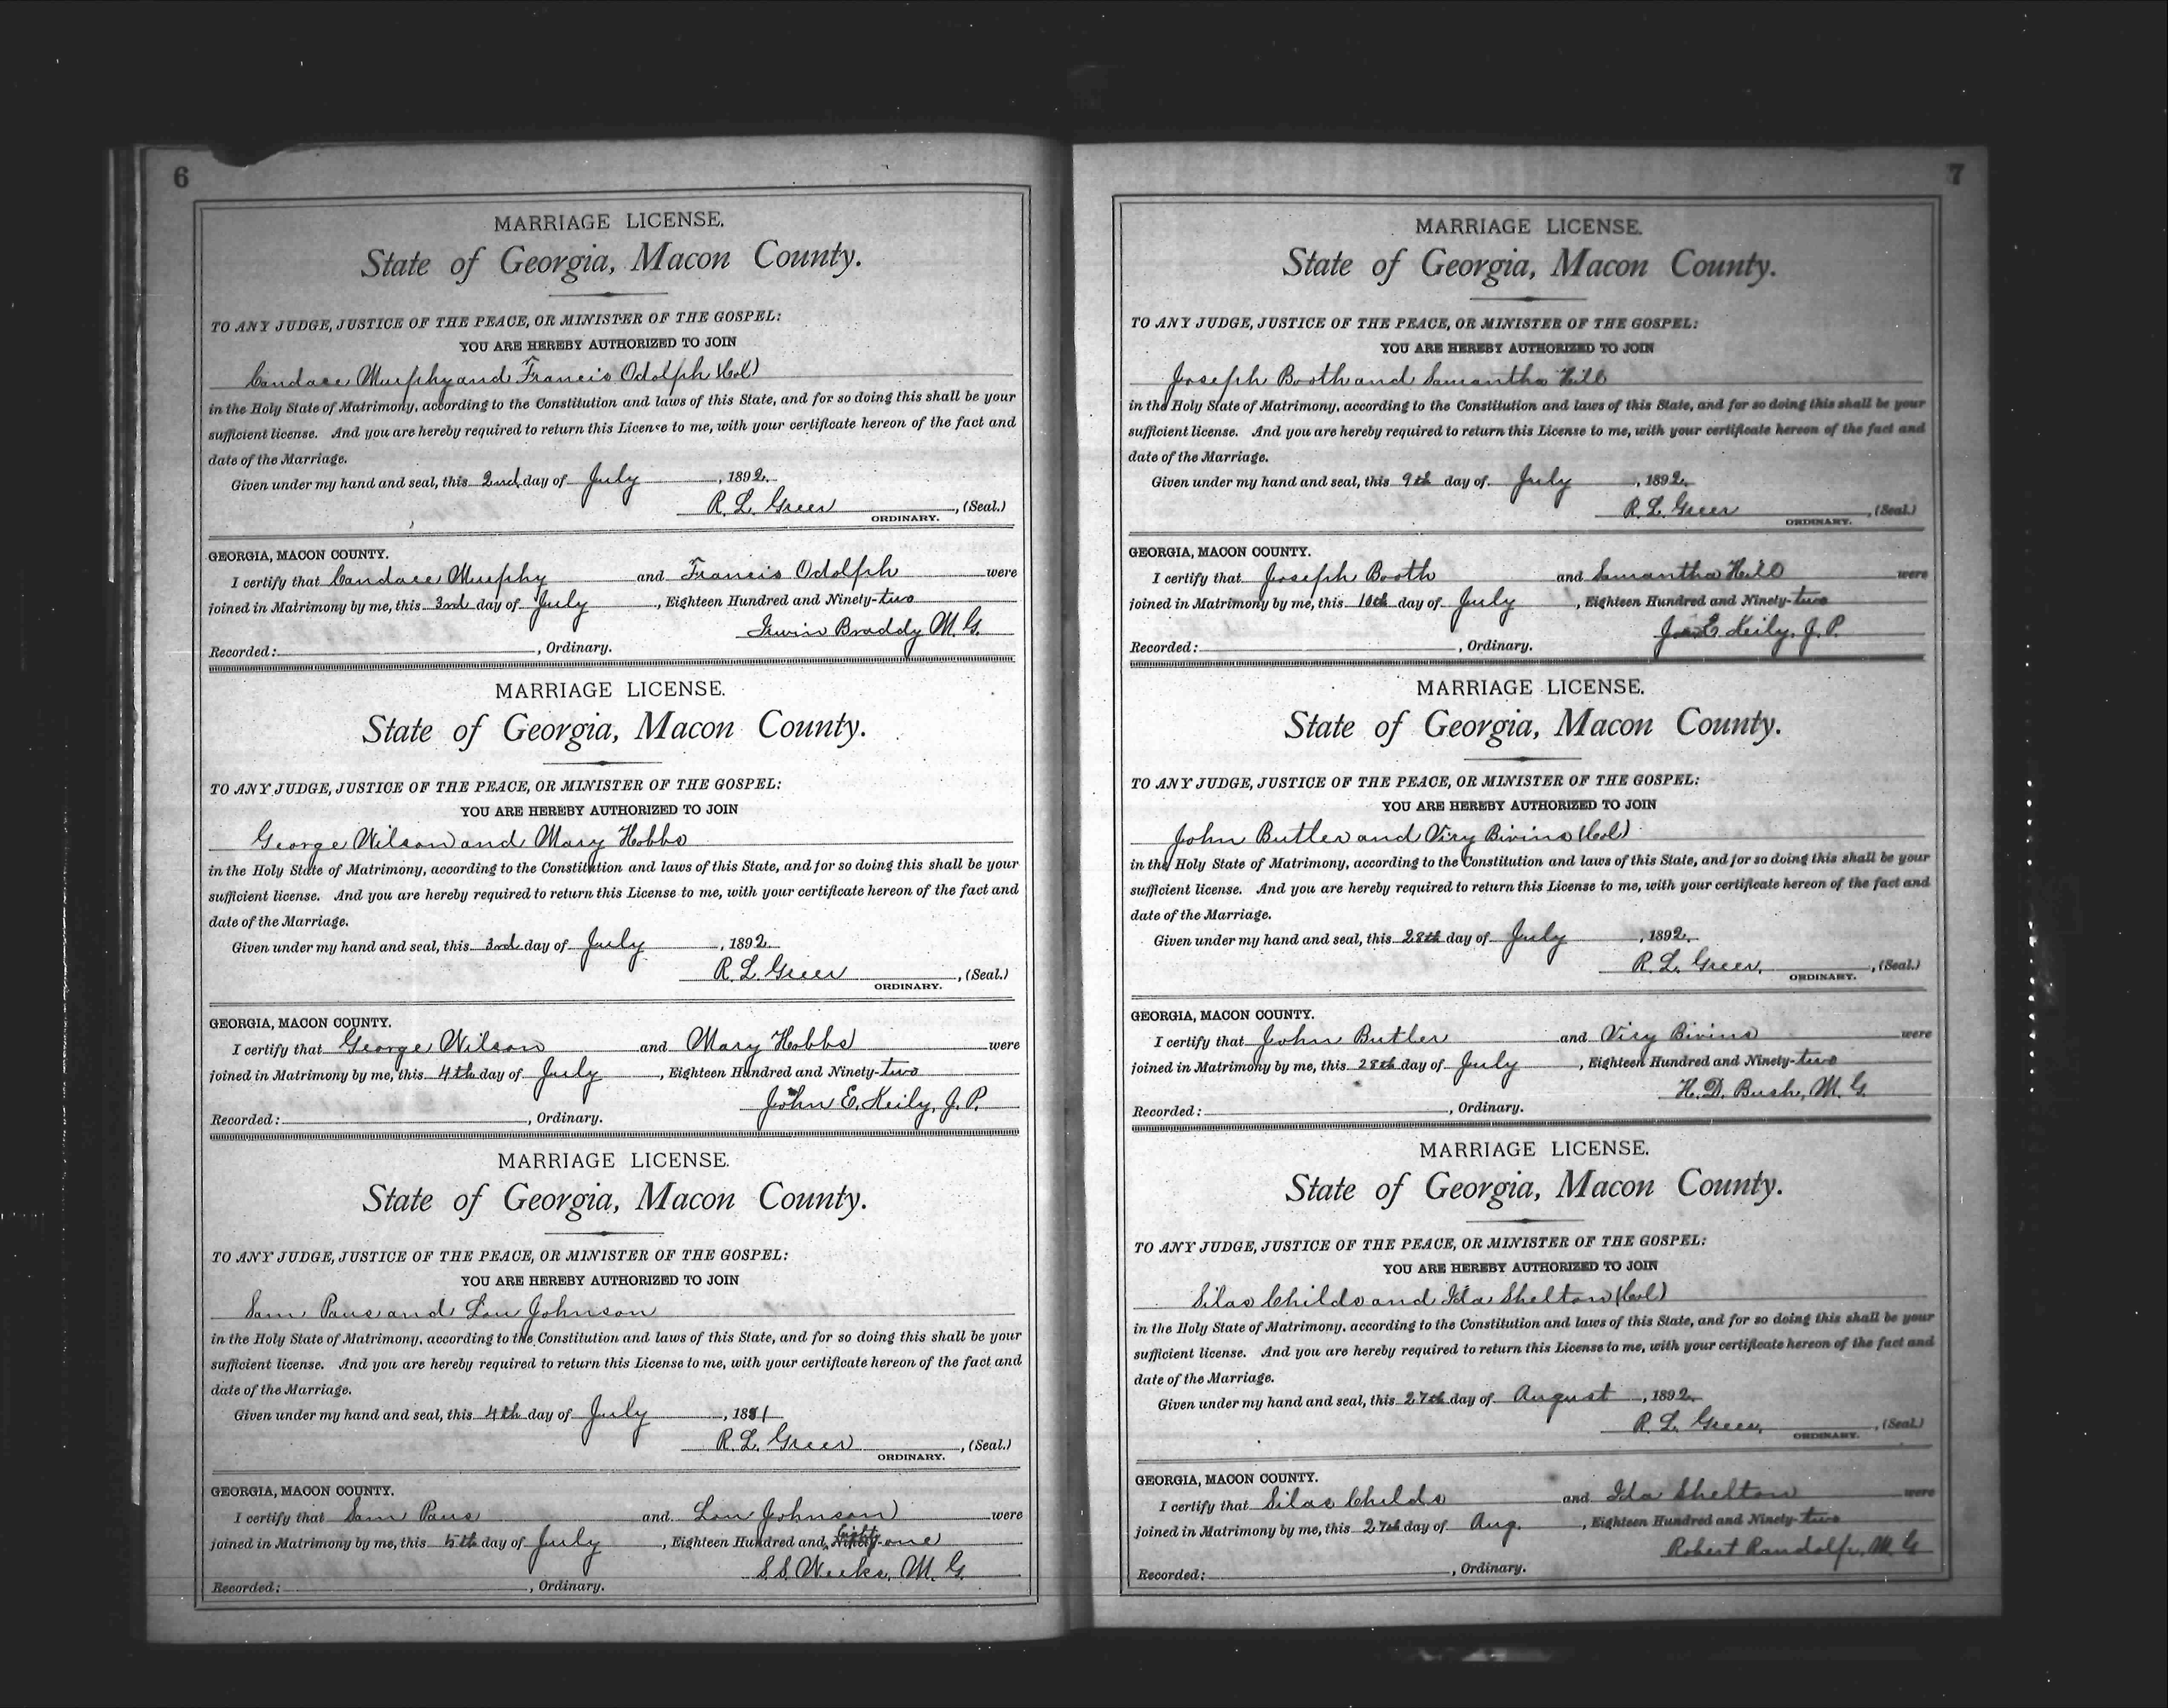 6
MARRIAGE LICENSE.
State of Georgia, Macon County.
TO ANY JUDGE, JUSTICE OF THE PEACE, OR MINISTER OF THE GOSPEL:
YOU ARE HEREBY AUTHORIZED TO JOIN
Candace Murphy and Francis Odolph (Col)
in the Holy State of Matrimony, according to the Constitution and laws of this State, and for so doing this shall be your
sufficient license. And you are hereby required to return this License to me, with your certificate hereon of the fact and
date of the Marriage.
Given under my hand and seal, this 2nd day of July, 1892.
R. L. Greer, (Seal.)
ORDINARY.
GEORGIA, MACON COUNTY.
I certify that Candace Murphy and Francis Odolph were
joined in Matrimony by me, this 3rd day of July, Eighteen Hundred and Ninety-two
Irwin Braddy M. G.
Recorded: , Ordinary.
MARRIAGE LICENSE.
State of Georgia, Macon County.
TO ANY JUDGE, JUSTICE OF THE PEACE, OR MINISTER OF THE GOSPEL:
YOU ARE HEREBY AUTHORIZED TO JOIN
George Wilson and Mary Hobbs
in the Holy State of Matrimony, according to the Constitution and laws of this State, and for so doing this shall be your
sufficient license. And you are hereby required to return this License to me, with your certificate hereon of the fact and
date of the Marriage.
Given under my hand and seal, this 3rd day of July, 1892
R. L. Greer, (Seal.)
ORDINARY.
GEORGIA, MACON COUNTY.
I certify that George Wilson and Mary Hobbs were
joined in Matrimony by me, this 4th day of July, Eighteen Hundred and Ninety-two
John E. Keily, J. P.
Recorded: , Ordinary.
MARRIAGE LICENSE.
State of Georgia, Macon County.
TO ANY JUDGE, JUSTICE OF THE PEACE, OR MINISTER OF THE GOSPEL:
YOU ARE HEREBY AUTHORIZED TO JOIN
Sam and Lou Johnson
in the Holy State of Matrimony, according to the Constitution and laws of this State, and for so doing this shall be your
sufficient license. And you are hereby required to return this License to me, with your certificate hereon of the fact and
date of the Marriage.
Given under my hand and seal, this 4th day of July, 1881
R. L. Greer, (Seal.)
ORDINARY.
GEORGIA, MACON COUNTY.
I certify that Sam and Lou Johnson were
joined in Matrimony by me, this 5th day of July, Eighteen Hundred and Eighty-one
S. S. Weeks, M. G.
Recorded: , Ordinary.
7
MARRIAGE LICENSE.
State of Georgia, Macon County.
TO ANY JUDGE, JUSTICE OF THE PEACE, OR MINISTER OF THE GOSPEL:
YOU ARE HEREBY AUTHORIZED TO JOIN
Joseph Booth and Samantha Hill
in the Holy State of Matrimony, according to the Constitution and laws of this State, and for so doing this shall be your
sufficient license. And you are hereby required to return this License to me, with your certificate hereon of the fact and
date of the Marriage.
Given under my hand and seal, this 9th day of July, 1892.
R. L. Greer, (Seal.)
ORDINARY.
GEORGIA, MACON COUNTY.
I certify that Joseph Booth and Samantha Hill were
joined in Matrimony by me, this 10th day of July, Eighteen Hundred and Ninety-two
E Keily, J. P.
Recorded: , Ordinary.
MARRIAGE LICENSE.
State of Georgia, Macon County.
TO ANY JUDGE, JUSTICE OF THE PEACE, OR MINISTER OF THE GOSPEL:
YOU ARE HEREBY AUTHORIZED TO JOIN
John Butler and Viry Bivins (Col)
in the Holy State of Matrimony, according to the Constitution and laws of this State, and for so doing this shall be your
sufficient license. And you are hereby required to return this License to me, with your certificate hereon of the fact and
date of the Marriage.
Given under my hand and seal, this 28th day of July, 1892.
R. L. Greer, (Seal.)
ORDINARY.
GEORGIA, MACON COUNTY.
I certify that John Butler and Viry Bivins were
joined in Matrimony by me, this 28th day of July, Eighteen Hundred and Ninety-two
H. D. Bush, M. G.
Recorded: , Ordinary.
MARRIAGE LICENSE.
State of Georgia, Macon County.
TO ANY JUDGE, JUSTICE OF THE PEACE, OR MINISTER OF THE GOSPEL:
YOU ARE HEREBY AUTHORIZED TO JOIN
Silas Childs and Ida Shelton (Col)
in the Holy State of Matrimony, according to the Constitution and laws of this State, and for so doing this shall be your
sufficient license. And you are hereby required to return this License to me, with your certificate hereon of the fact and
date of the Marriage.
Given under my hand and seal, this 27th day of August, 1892.
R. L. Greer, (Seal.)
ORDINARY.
GEORGIA, MACON COUNTY.
I certify that Silas Childs and Ida Shelton were
joined in Matrimony by me, this 27th day of Aug., Eighteen Hundred and Ninety-two
Robert Randolph, M. G
Recorded: , Ordinary.